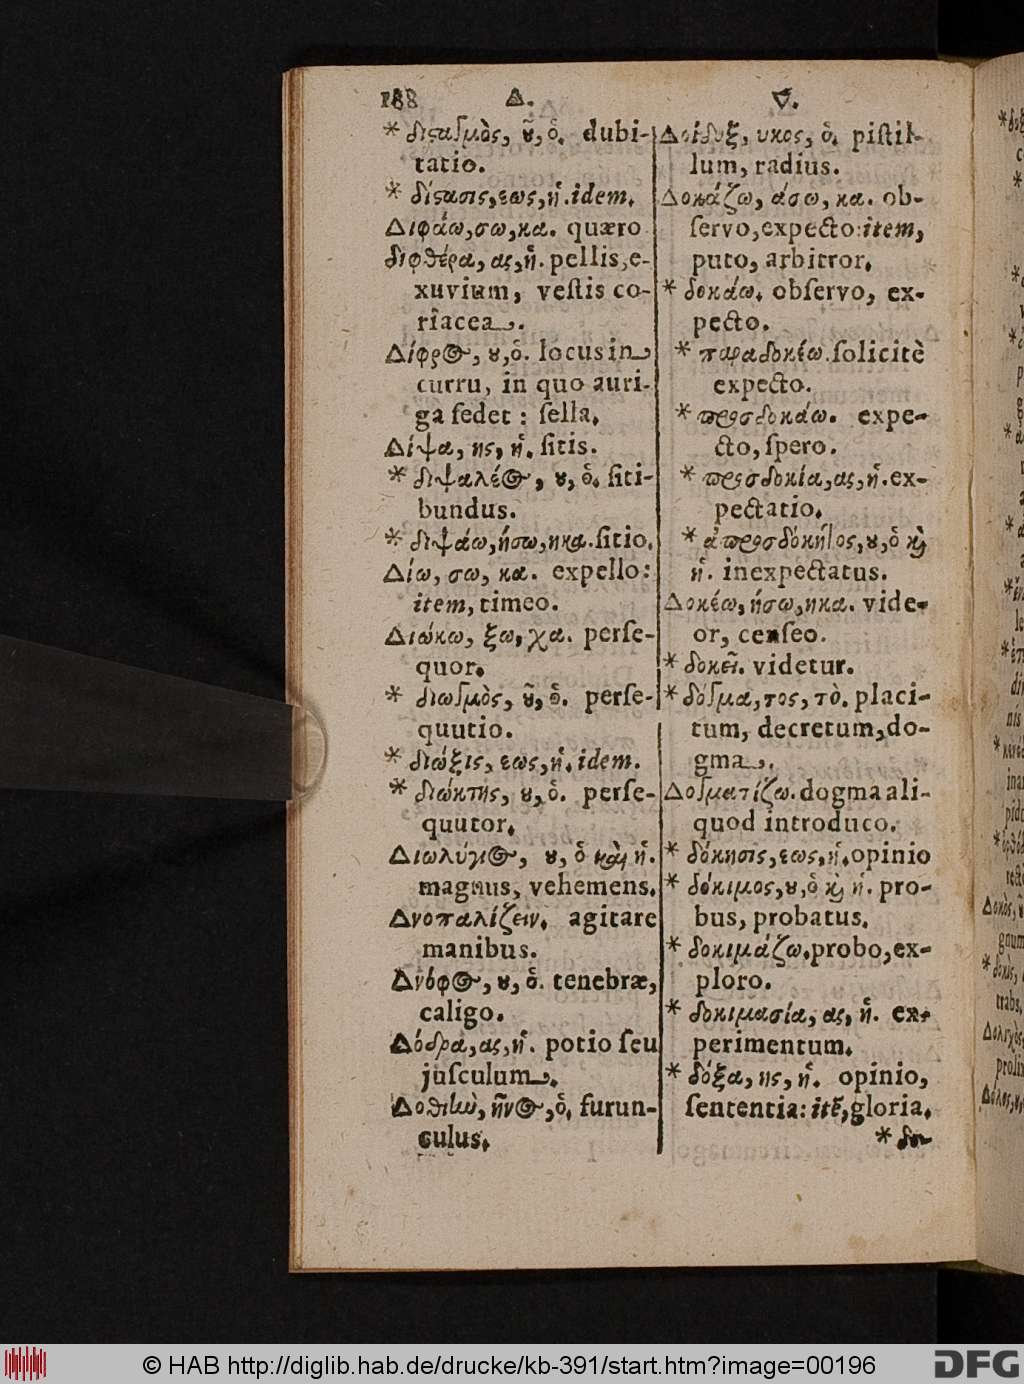 188 Δ. Δ.
* διςαγμὸς, ȣ͂, ὁ. dubi-
tatio.
* δίςασις, εως, ἡ. idem.
Διφάω, σω, κα. quæro
διφθέρα, ας, ἡ. pellis, e-
xuvium, veſtis co-
riacea.
Δίφρος, ȣ, ὁ. locus in
curru, in quo auri-
ga ſedet : ſella.
Δίψα, ης, ἡ. ſitis.
* διψαλέος, ȣ, ὁ. ſiti-
bundus.
* διψάω, ήσω, ηκα. ſitio.
Δίω, σω, κα. expello:
item, timeo.
Διώκω, ξω, χα. perſe-
quor.
* διωγμὸς, ȣ͂, ὁ. perſe-
quutio.
* διώξις, εως, ἡ. idem.
* διώκτης, ȣ, ὁ. perſe-
quutor.
Διωλύγιος, ȣ, ὁ καὶ ἡ.
magnus, vehemens.
Δνοπαλίζειν. agitare
manibus.
Δνόφος, ȣ, ὁ. tenebræ,
caligo.
Δόδρα, ας, ἡ. potio ſeu
juſculum.
Δοθιὼ, ῆνος, ὁ. furun-
culus.
Δοίδυξ, υκος, ὁ. piſtil-
lum, radius.
Δοκάζω, άσω, κα. ob-
ſervo, expecto: item,
puto, arbitror.
* δοκάω. obſervo, ex-
pecto.
* παραδοκέω. ſolicitè
expecto.
* προσδοκάω. expe-
cto, ſpero.
* προσδοκία, ας, ἡ. ex-
pectatio.
* ἀπροσδόκητος, ȣ, ὁ ϗ
ἡ. inexpectatus.
Δοκέω, ήσω, ηκα. vide-
or, cenſeo.
* δοκεῖ. videtur.
* δόγμα, τος, τὸ. placi-
tum, decretum, do-
gma.
Δογματίζω. dogma ali-
quod introduco.
* δόκησις, εως, ἡ. opinio
* δόκιμος, ȣ, ὁ ϗ ἡ. pro-
bus, probatus.
* δοκιμάζω. probo, ex-
ploro.
* δοκιμασία, ας, ἡ. ex-
perimentum.
* δόξα, ης, ἡ. opinio,
ſententia: itē, gloria.
* δο-
© HAB http://diglib.hab.de/drucke/kb-391/start.htm?image=00196
DFG